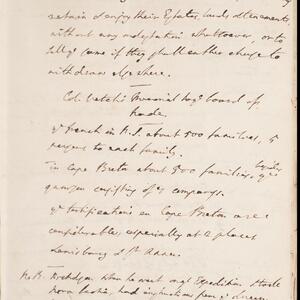 retain & enjoy their Estates, lands & tenements,
without any molestation whatsoever, or to
sell ye same if they shall rather chuse to
withdraw elsewhere.
Col. Vetch's Memorial to ye board of
trade.
ye french in N.S. about 500 families, 5
persons to each family.
in Cape Breton about 500 families, besides ye
garrison consisting of 7 companys.
ye fortifications in Cape Breton are
considerable, especially at 2 places
Louisbourg & St Anne.
N.B. when he went on ye Expedition
Nova Scotia, had instructions from